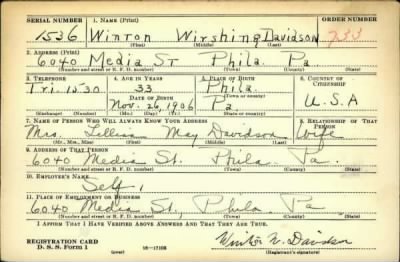 SERIAL NUMBER 1. NAME (Print) ORDER NUMBER
1536 Winron Wirshing Davidson 733
(First) (Middle) (Last)
2. ADDRESS (Print)
6040 Media St Phila. Pa
(Number and street or R. F. D. number) (Town) (County) (State)
3. TELEPHONE 4. AGE IN YEARS 5. PLACE OF BIRTH 6. COUNTRY OF CITIZENSHIP
Tri. 1530 33 Phila.
DATE OF BIRTH (Town or county)
Nov. 26, 1906 Pa U.S.A
(Exchange) (Number) (Mo.) (Day) (Yr.) (State or country)
7. NAME OF PERSON WHO WILL ALWAYS KNOW YOUR ADDRESS 8. RELATIONSHIP OF THAT PERSON
Mrs. May Davidson Wife
(Mr., Mrs., Miss) (First) (Middle) (Last)
9. ADDRESS OF THAT PERSON
6040 Media St. Phila. Pa.
(Number and street or R. F. D. number) (Town) (County) (State)
10. EMPLOYER'S NAME
Self,
11. PLACE OF EMPLOYMENT OR BUSINESS
6040 Media St, Phila. Pa
(Number and street or R. F. D. number) (Town) (County) (State)
I AFFIRM THAT I HAVE VERIFIED ABOVE ANSWERS AND THAT THEY ARE TRUE.
REGISTRATION CARD
D. S. S. Form 1 (over) 16—17105 Winton W. Davidson
(Registrant's signature)